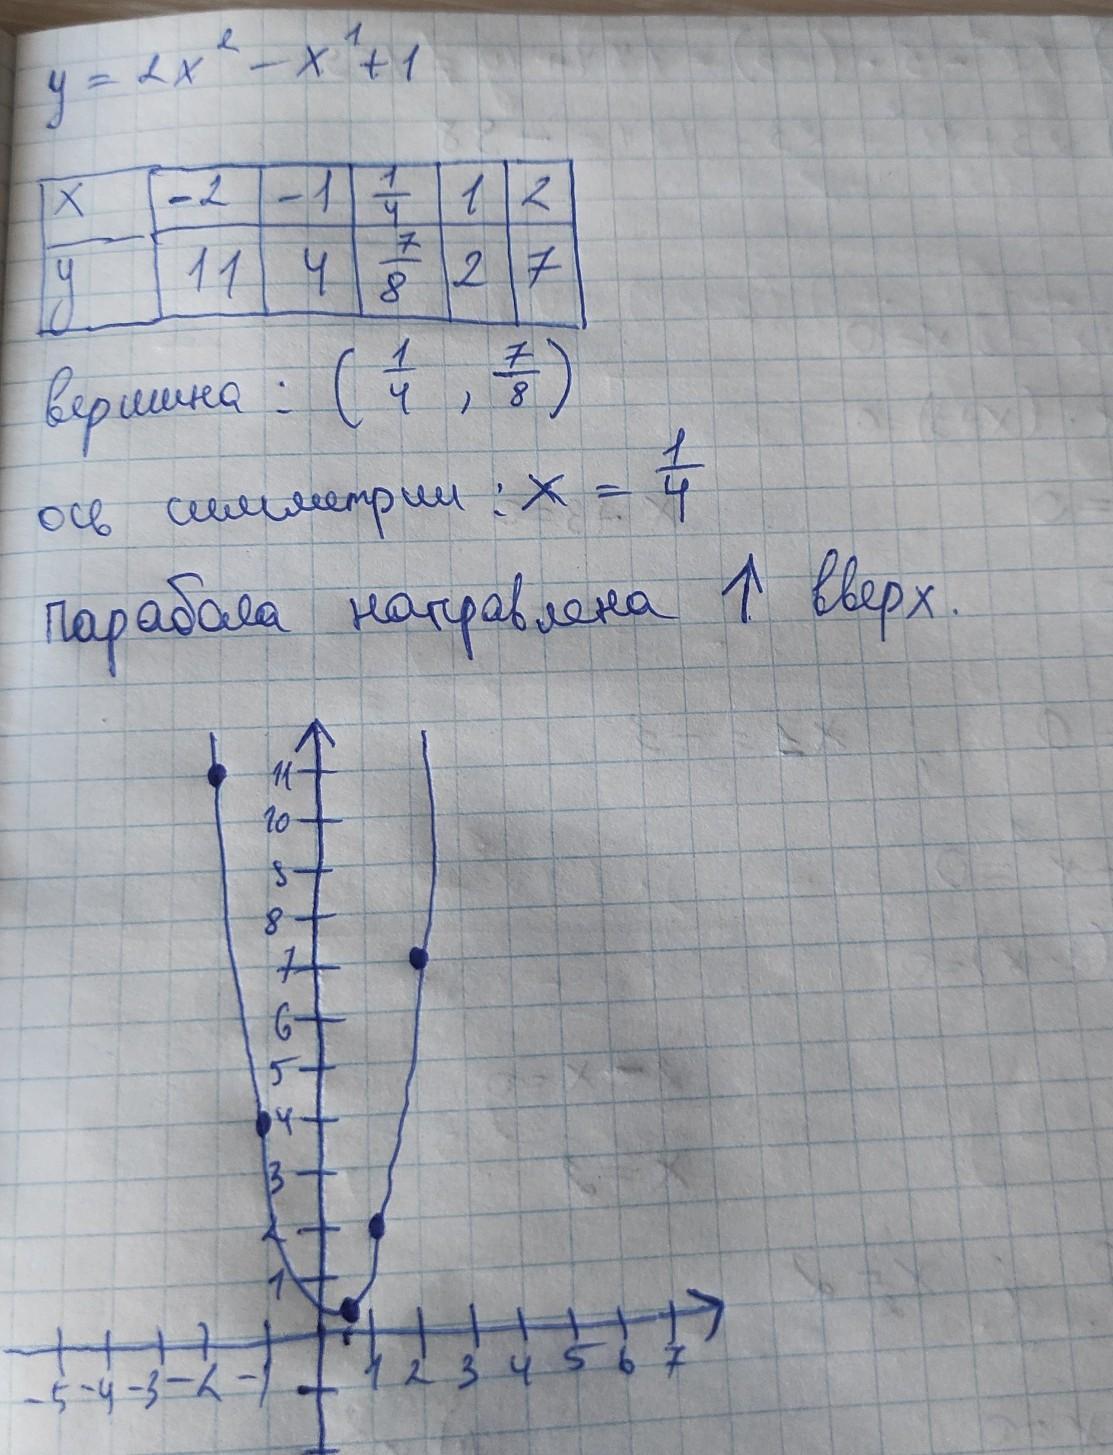 y = 2x² - x¹ + 1
x -2 -1 1/4 1 2
y 11 4 7/8 2 7
вершина : ( 1/4 , 7/8 )
ось симметрии : x = 1/4
Парабола направлена ↑ вверх.
11
10
9
8
7
6
5
4
3
2
1
-5 -4 -3 -2 -1 1 2 3 4 5 6 7